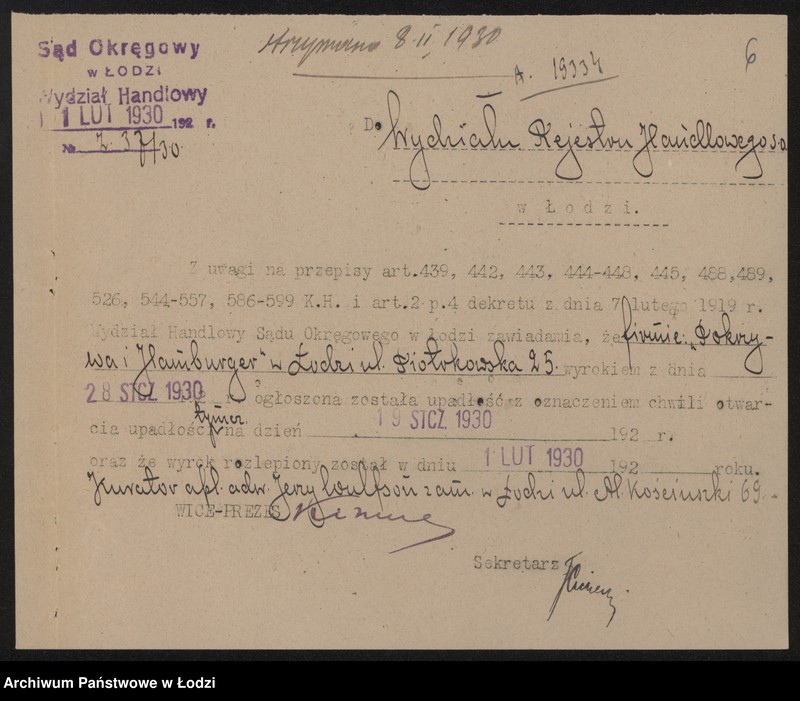 Sąd Okręgowy
w ŁODZI
Wydział Handlowy
1 LUT 1930 192 r.
№ Z. 37/30
Otrzymano 8.II.1930
A. 19334
6
Do Wydziału Rejestru Handlowego S.O.
w Łodzi.
Z uwagi na przepisy art.439, 442, 443, 444-448, 445, 488,489,
526, 544-557, 586-599 K.H. i art.2 p.4 dekretu z dnia 7 lutego 1919 r.
Wydział Handlowy Sądu Okręgowego w Łodzi zawiadamia, że firmie: „Pokrzy-
wa i Hamburger" w Łodzi ul. Piotrkowska 25. wyrokiem z dnia
28 STCZ 1930 r. ogłoszona została upadłość z oznaczeniem chwili otwar-
cia upadłości tymcz. na dzień 19 STCZ. 1930 192 r.
oraz że wyrok rozlepiony został w dniu 1 LUT 1930 192 roku.
Kurator apl. adw. Jerzy Wulfson zam. w Łodzi ul. Al. Kościuszki 69.-
WICE-PREZES
Sekretarz
Archiwum Państwowe w Łodzi